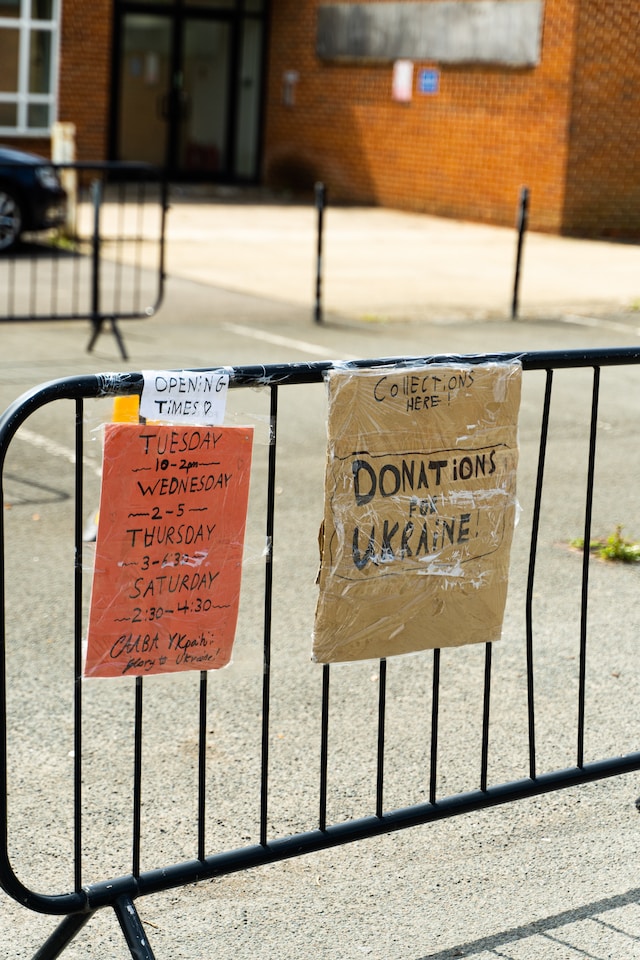 OPENING
TIMES
TUESDAY
10-2pm
WEDNESDAY
2-5
THURSDAY
3-6:30
SATURDAY
2:30-4:30
СЛАВА УКраїні
glory to Ukraine!
COllECTiONS
HERE!
DONATiONS
FOR
UKRAiNE!